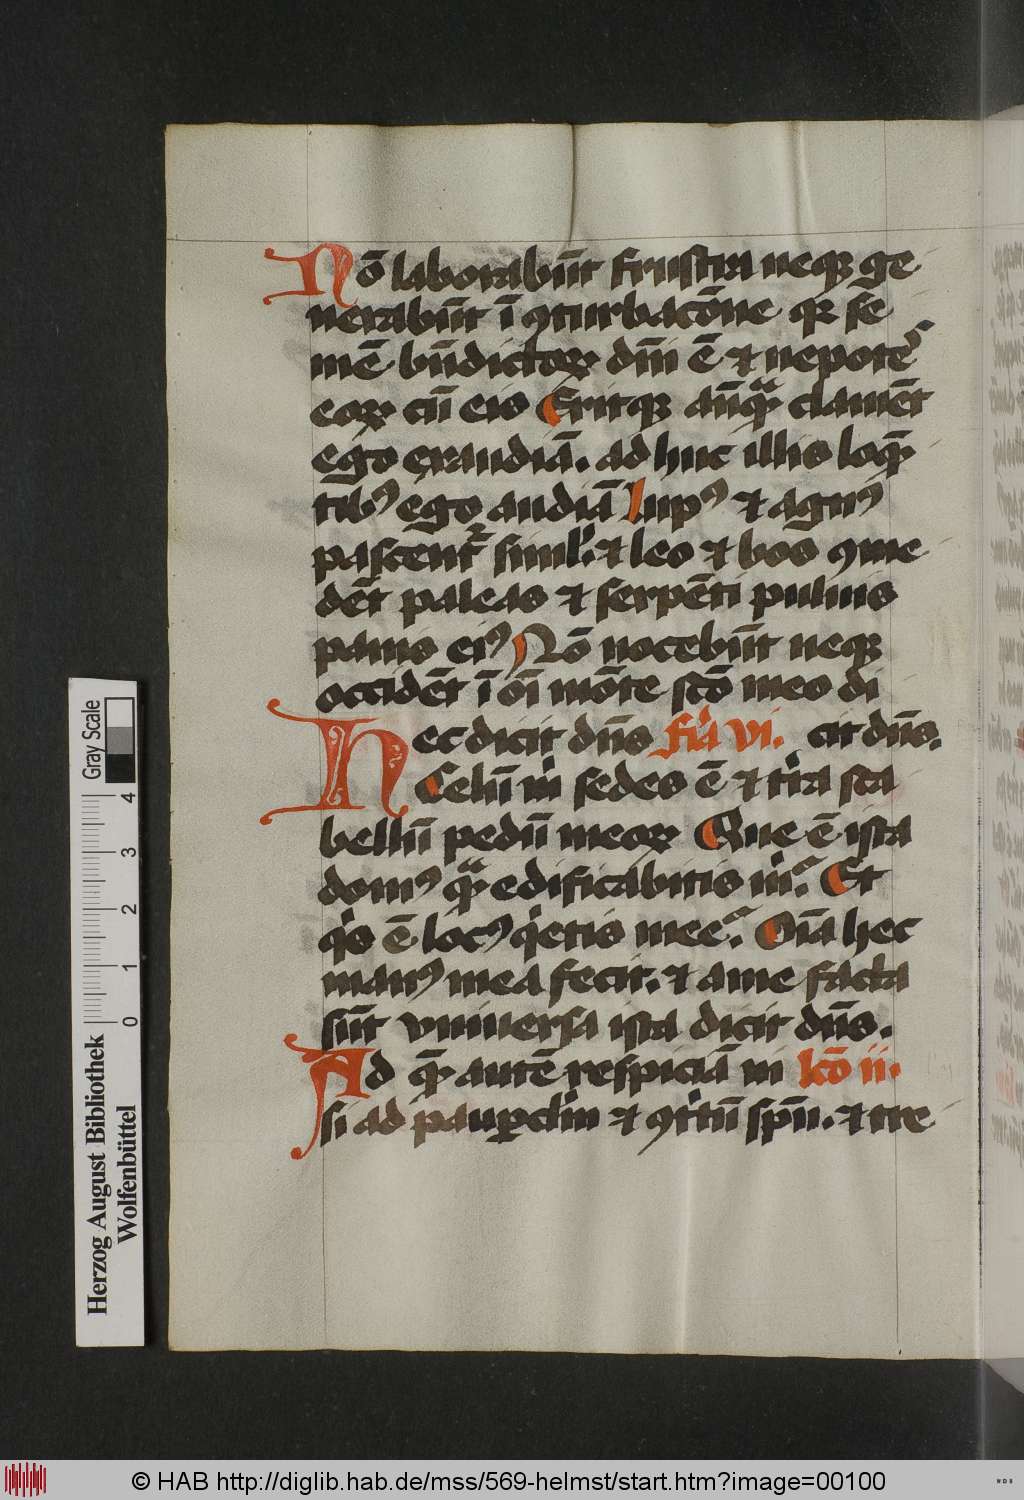 Nō laborabūt frustra neqꝫ ge
nerabūt ī ꝯturbacōne qꝛ se
mē bn̄dictoꝝ dn̄i ē ⁊ nepotes
eoꝝ cū eis Eritqꝫ ān̄qᷓꝫ clamēt
ego exaudiā. adhuc illis loqn̄
tibꝰ ego audiā Lupꝰ ⁊ agnꝰ
pascent᷑ simł. ⁊ leo ⁊ bos ꝯme
dēt paleas ⁊ serpēti puluis
panis eiꝰ Nō nocebūt neqꝫ
occidēt ī oī mōte scō meo di
Hec dicit dn̄s fia vi. cit dn̄s.
Celū m̍ sedes ē ⁊ tr̍a sca
bellū pedū meoꝝ Que ē ista
domꝰ qᷓꝫ edificabitis m̍? Et
qͥs ē locꝰ qͥetis mee? Oīa hec
manꝰ mea fecit. ⁊ a me facta
sūt vniuersa ista dicit dn̄s.
Ad qꝫ autē respiciā ni lcō ii.
si ad paupꝑclm̍ ⁊ ꝯtͥtū spm̄. ⁊ tre
Herzog August Bibliothek
Wolfenbüttel
0 1 2 3 4
Gray Scale
© HAB http://diglib.hab.de/mss/569-helmst/start.htm?image=00100